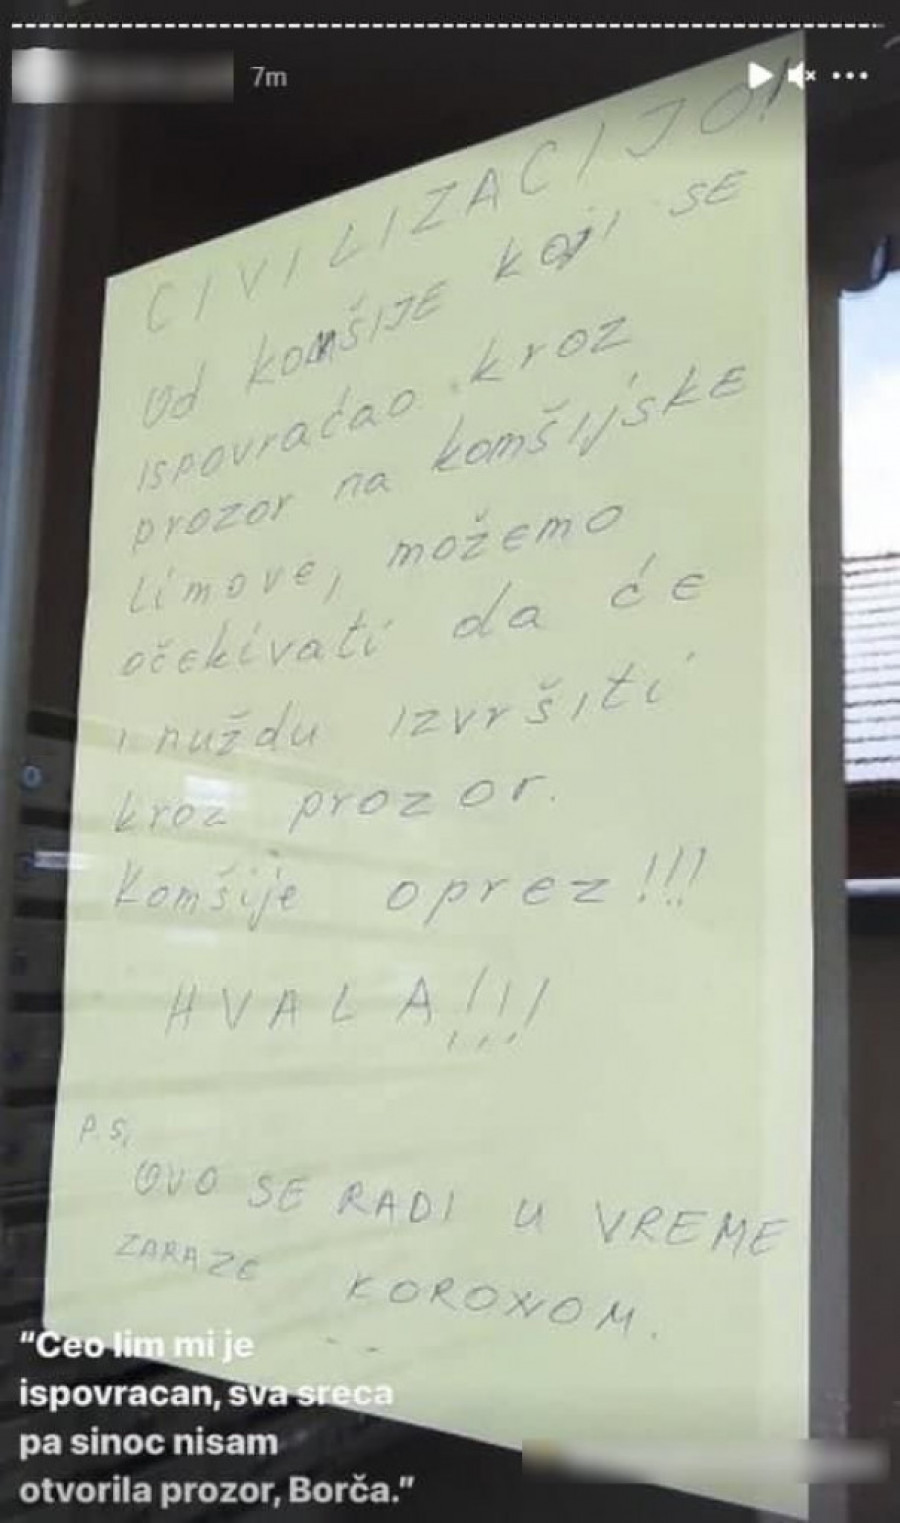 7m
CIVILIZACIJO!
Od komšIJE koji SE
ispovraćao kroz
prozor na komšijskE
limove, možemo
očekivati da će
i nuždu izvršiti
kroz prozor.
Komšije oprez!!!
HVALA!!!
P.S.
OVO SE RADI U VREME
ZARAZE KORONOM.
“Ceo lim mi je
ispovracan, sva sreca
pa sinoc nisam
otvorila prozor, Borča.”